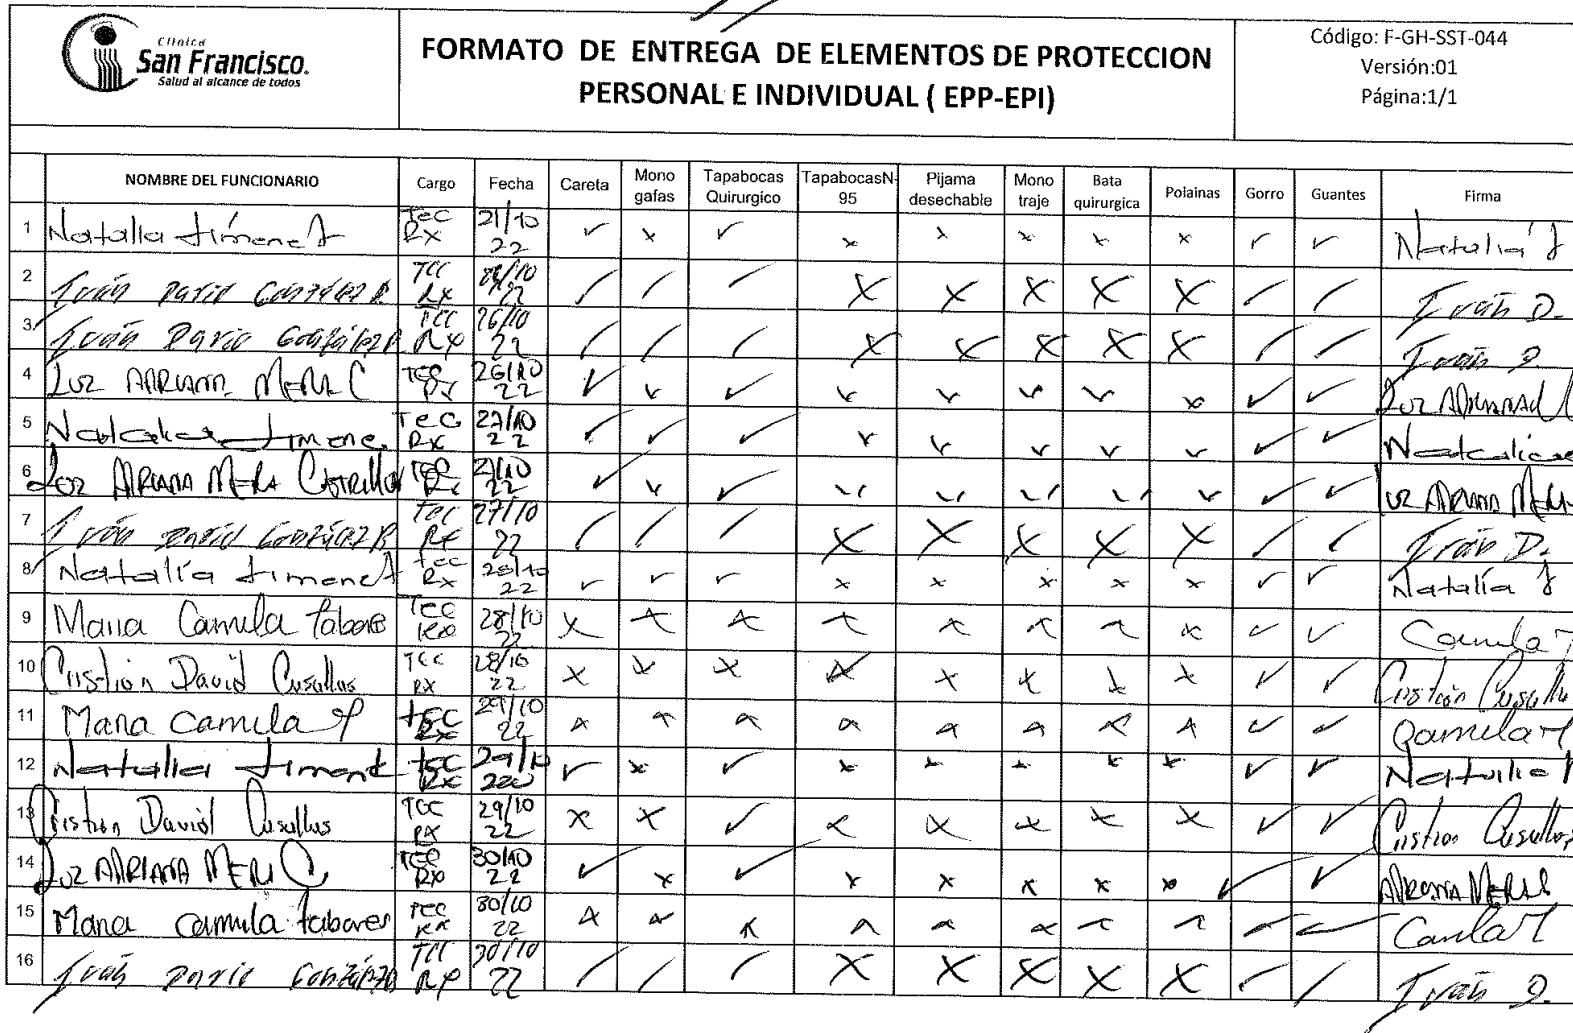 Clínica
San Francisco.
Salud al alcance de todos
FORMATO DE ENTREGA DE ELEMENTOS DE PROTECCION
PERSONAL E INDIVIDUAL ( EPP-EPI)
Código: F-GH-SST-044
Versión:01
Página:1/1
NOMBRE DEL FUNCIONARIO Cargo Fecha Careta Mono gafas Tapabocas Quirurgico TapabocasN-95 Pijama desechable Mono traje Bata quirurgica Polainas Gorro Guantes Firma
1 Natalia Jimenez Tec Rx 21/10 22 ✓ x ✓ x x x x x ✓ ✓ Natalia J
2 Iván Dario González R Tec Rx 22 / / / x x x x x / / Iván D.
3 Iván Dario González R Tec Rx 26/10 22 / / / x x x x x / / Iván D.
4 Luz ADRIANA MERA C Tec Rx 26/10 22 ✓ ✓ ✓ ✓ ✓ ✓ ✓ x ✓ ✓ Luz ADRIANA
5 Natalia Jimene Tec Rx 27/10 22 ✓ ✓ ✓ ✓ ✓ ✓ ✓ ✓ ✓ ✓ Natalia
6 Luz ADRIANA MERA CASTRILLON Tec Rx 22 ✓ ✓ ✓ ✓ ✓ ✓ ✓ ✓ ✓ ✓ Luz ADRIANA MERA
7 Iván Dario González R Tec Rx 27/10 22 / / / x x x x x / / Iván D.
8 Natalía Jimenez Tec Rx 28/10 22 ✓ ✓ ✓ x x x x x ✓ ✓ Natalía J
9 Maria Camila Tabares Tec Rx 28/10 22 x x x x x x x x ✓ ✓ Camila T
10 Cristian David Cusullus Tec RX 28/10 22 x x x x x x x x ✓ ✓ Cristian
11 Maria Camila T Tec Rx 29/10 22 x x x x x x x x ✓ ✓ Camila T
12 Natalia Jimenez tec Rx 29/10 ✓ x ✓ x x x x x ✓ ✓ Natalia
13 Cristian David Cusullus Tec RX 29/10 22 x x ✓ x x x x x ✓ ✓ Cristian
14 Luz ADRIANA MERA C Tec Rx 30/10 22 ✓ x ✓ x x x x x ✓ ✓ ADRIANA MERA
15 Maria Camila tabares Tec Rx 30/10 22 x x x x x x x x ✓ ✓ Camila T
16 Iván Dario González Tec Rx 30/10 22 / / / x x x x x / / Iván D.